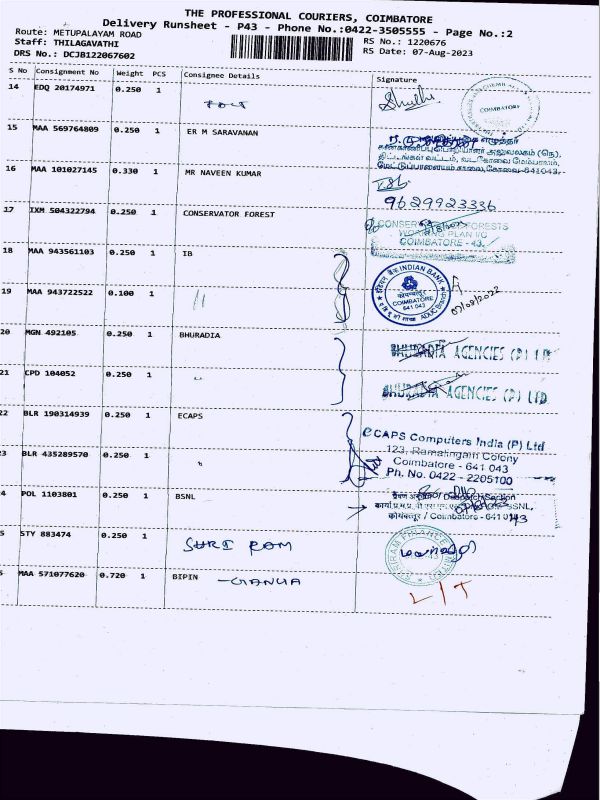 THE PROFESSIONAL COURIERS, COIMBATORE
Delivery Runsheet - P43 - Phone No.:0422-3505555 - Page No.:2
Route: METUPALAYAM ROAD
Staff: THILAGAVATHI
DRS No.: DCJB122067602
RS No.: 1220676
RS Date: 07-Aug-2023
S No Consignment No Weight PCS Consignee Details Signature
14 EDQ 20174971 0.250 1
COIMBATORE
15 MAA 569764809 0.250 1 ER M SARAVANAN
16 MAA 101027145 0.330 1 MR NAVEEN KUMAR
9629923336
17 IXM 504322794 0.250 1 CONSERVATOR FOREST
CONSERVATOR FORESTS
WORKING PLAN I/C
COIMBATORE - 43.
18 MAA 943561103 0.250 1 IB
INDIAN BANK
COIMBATORE
641 043
19 MAA 943722522 0.100 1 //
07/08/2023
20 MGN 492105 0.250 1 BHURADIA
BHURADIA AGENCIES (P) LTD
21 CPD 104052 0.250 1 "
BHURADIA AGENCIES (P) LTD
22 BLR 190314939 0.250 1 ECAPS
eCAPS Computers India (P) Ltd
123, Ramalingam Colony
Coimbatore - 641 043
Ph. No. 0422 - 2205100
23 BLR 435289570 0.250 1 "
24 POL 1103801 0.250 1 BSNL
BSNL,
कोयंबत्तूर / Coimbatore - 641 043
5 STY 883474 0.250 1 SHRI RAM
MAA 571077620 0.720 1 BIPIN
L/T